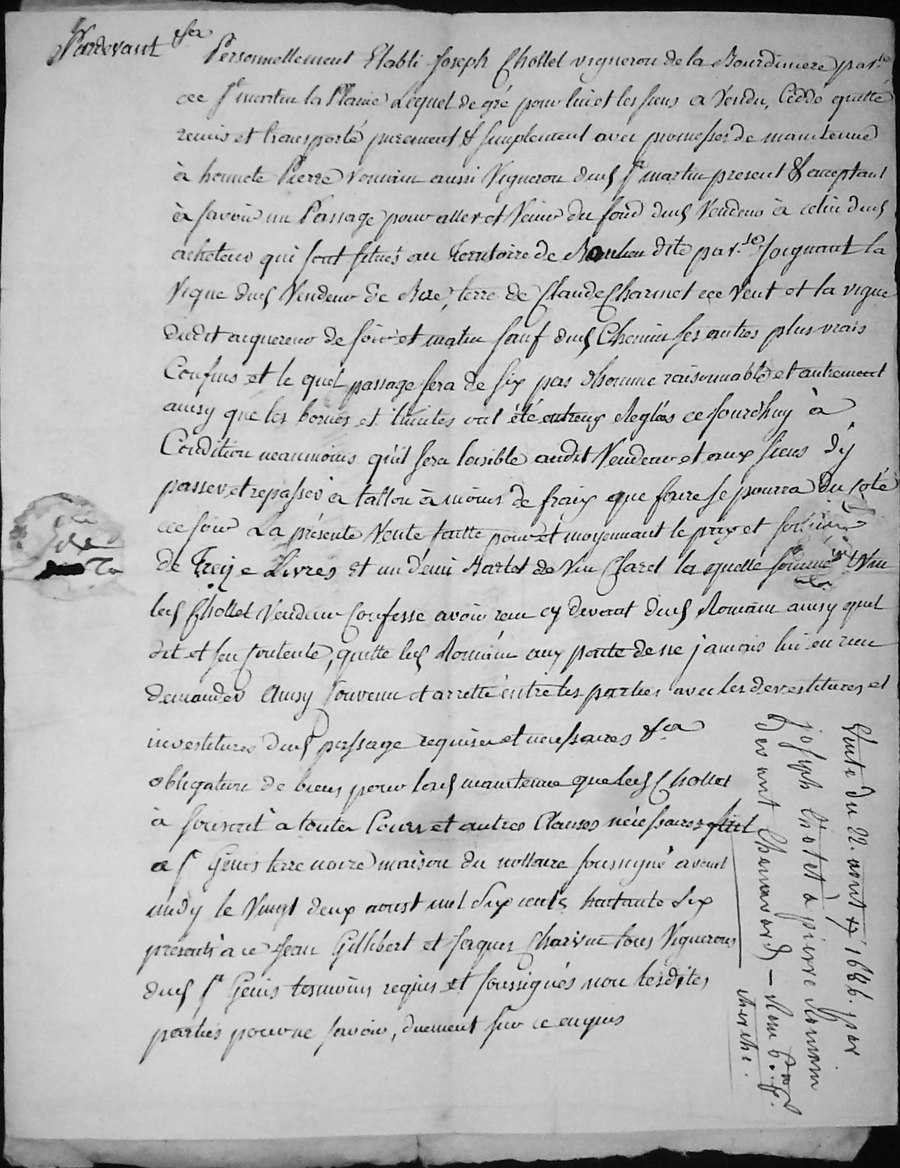 Pardevant &ca Personnellement Etabli Joseph Chollet vigneron de la Bourdiniere par.se
de St martin la Plaine Lequel de gré pour lui et les siens a Vendu, Ceddé quitté
remis et transporté purement & simplement avec promesse de maintenue
à honnete Pierre Romain aussi Vigneron dud St martin present & acceptant
à savoir un Passage pour aller et Venir du fond dud Vendeur à celui dud
acheteur qui sont situés au Territoire de dite par.se Joignant la
Vigne dud Vendeur de Bize, terre de Claude Charmet de Vent et la vigne
dudit acquereur de soir et matin sauf dud Chemin ses autres plus vrais
Confins et le quel passage sera de six pas d'homme raisonnable et autrement
ainsy que les bornes et limites ont été entreux Reglés ce Jourd'huy à
Condition neanmoins qu'il sera loisible audit Vendeur et aux siens d'y
passer et repasser à talon à moins de fraix que faire se pourra du Coté
de soir La présente Vente faitte pour et moyennant le prix et somme
de Treize Livres et un demi Bartet de Vin Claret la quelle somme & Vin
led Chollet Vendeur Confesse avoir reçu cy devant dud Romain ainsy qu'il
dit et s'en Contente, quitte led Romain aux pacte de ne jamais lui en rien
demander Ainsy Convenu et arretté entre les parties avec les devestitures et
investitures dud passage requises et necessaires &ca
obligation de biens pour lad maintenue que led Chollet
à soumis à toutes Cours et autres Clauses nécessaires fait
a St Genis terre noire maison du nottaire soussigné avant
midy le Vingt deux aoust mil six cents huitante six
presents à ce Jean Gillibert et Jaques Charvin tous Vignerons
dud St Genis temoins requis et soussignés non lesdites
parties pour ne savoir, duement sur ce enquis
Vente du 22 aoust 1686. par
joseph Chollet à pierre Romain
devant Chanavard